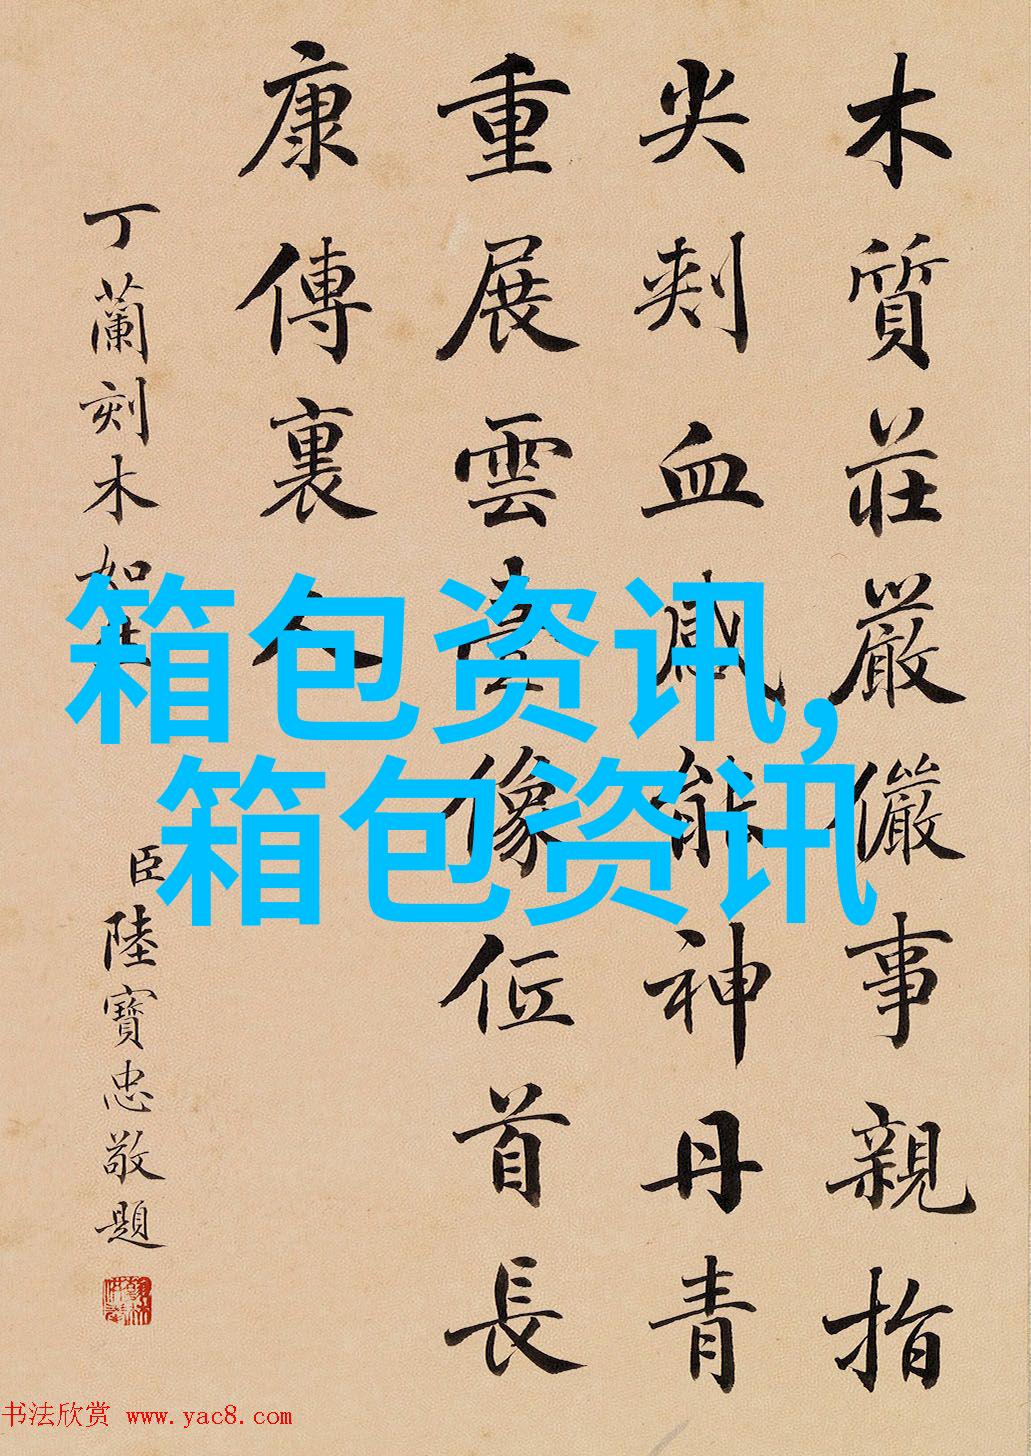 木質莊嚴儼事親指
尖刾血感能神丹青
重展雲臺像首長
康傳裏人
丁蘭刻木如生
臣陸寶忠敬題
箱包资讯,
箱包资讯
书法欣赏 www.yac8.com